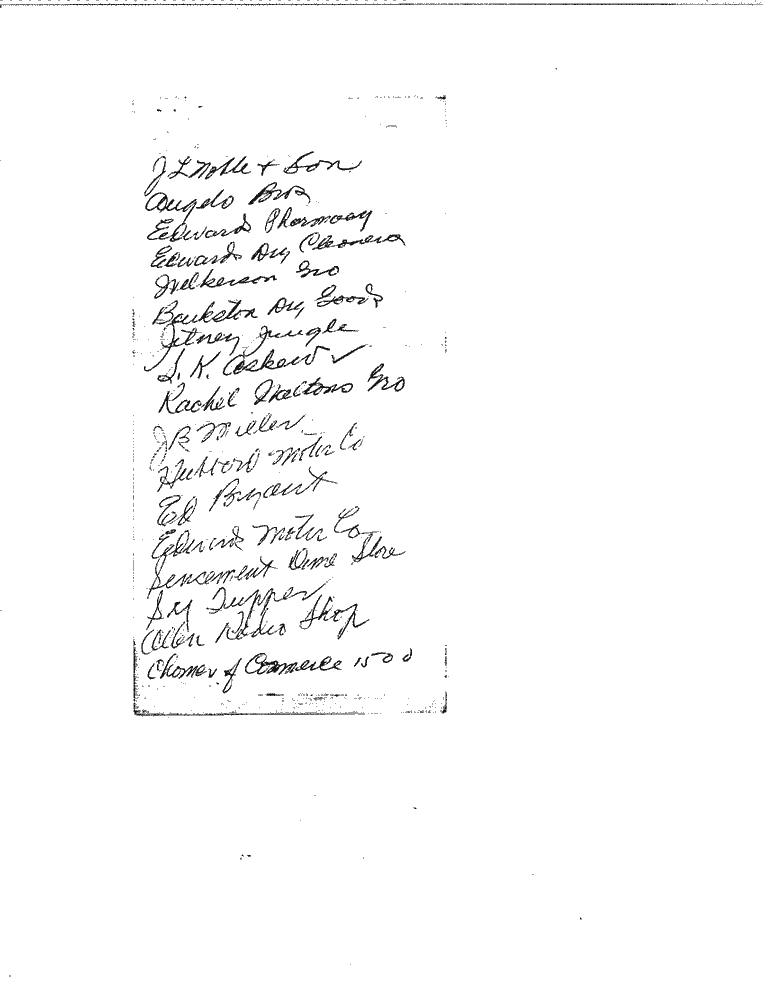 J L Noble + Son
Angelo Bros
Edward Pharmacy
Edwards Dry Cleaners
Wilkerson Gro
Bankston Dry Goods
Jitney Jungle
S. K. Askew ✓
Rachel Meltons Gro
JB Miller
Hubbard Motor Co
Ed Bryant
Edwards Motor Co
Dime Store
Tupper
Allen Radio Shop
Chomer of Commerce 1500